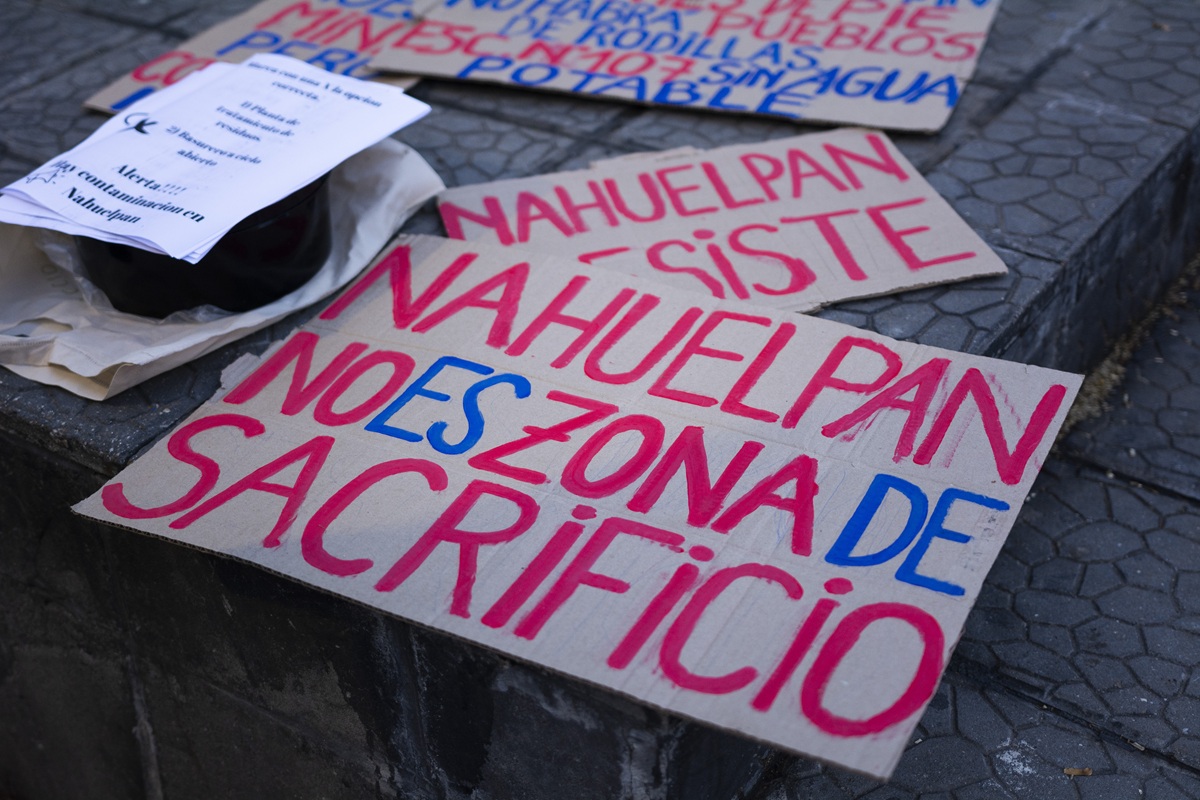 MIN
PERI
NO HABRA
DE PIE
DE RODILLAS
PUEBLOS
ESC. N°107 SIN AGUA
POTABLE
Marca con una X la opcion
correcta.
1) Planta de
tratamiento de
residuos
2) Basurero a cielo
abierto
Alerta!!!!
Hay contaminacion en
Nahuelpan
NAHUELPAN
ESiSTE
NAHUELPAN
NO ES ZONA DE
SACRiFiCiO